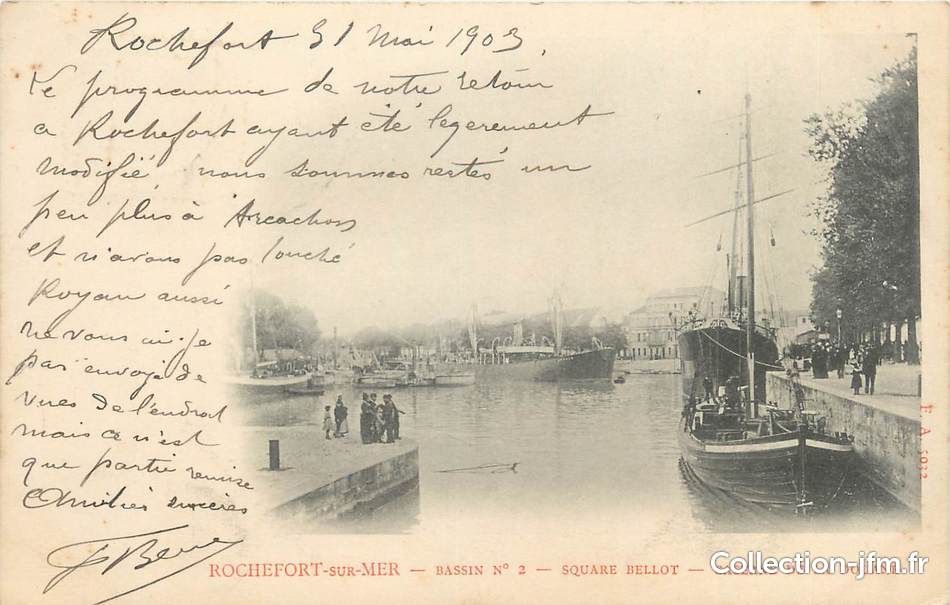 Rochefort 31 Mai 1903.
Le programme de notre retour
a Rochefort ayant été legerement
modifié, nous sommes restés un
peu plus à Arcachon
et n'avons pas touché
Royan aussi
ne vous ai-je
pas envoyé de
vues de l'endroit
mais ce n'est
que partie remise
Amitiés sincères
ROCHEFORT-SUR-MER — BASSIN N° 2 — SQUARE BELLOT —
F. A. 5032
Collection-jfm.fr